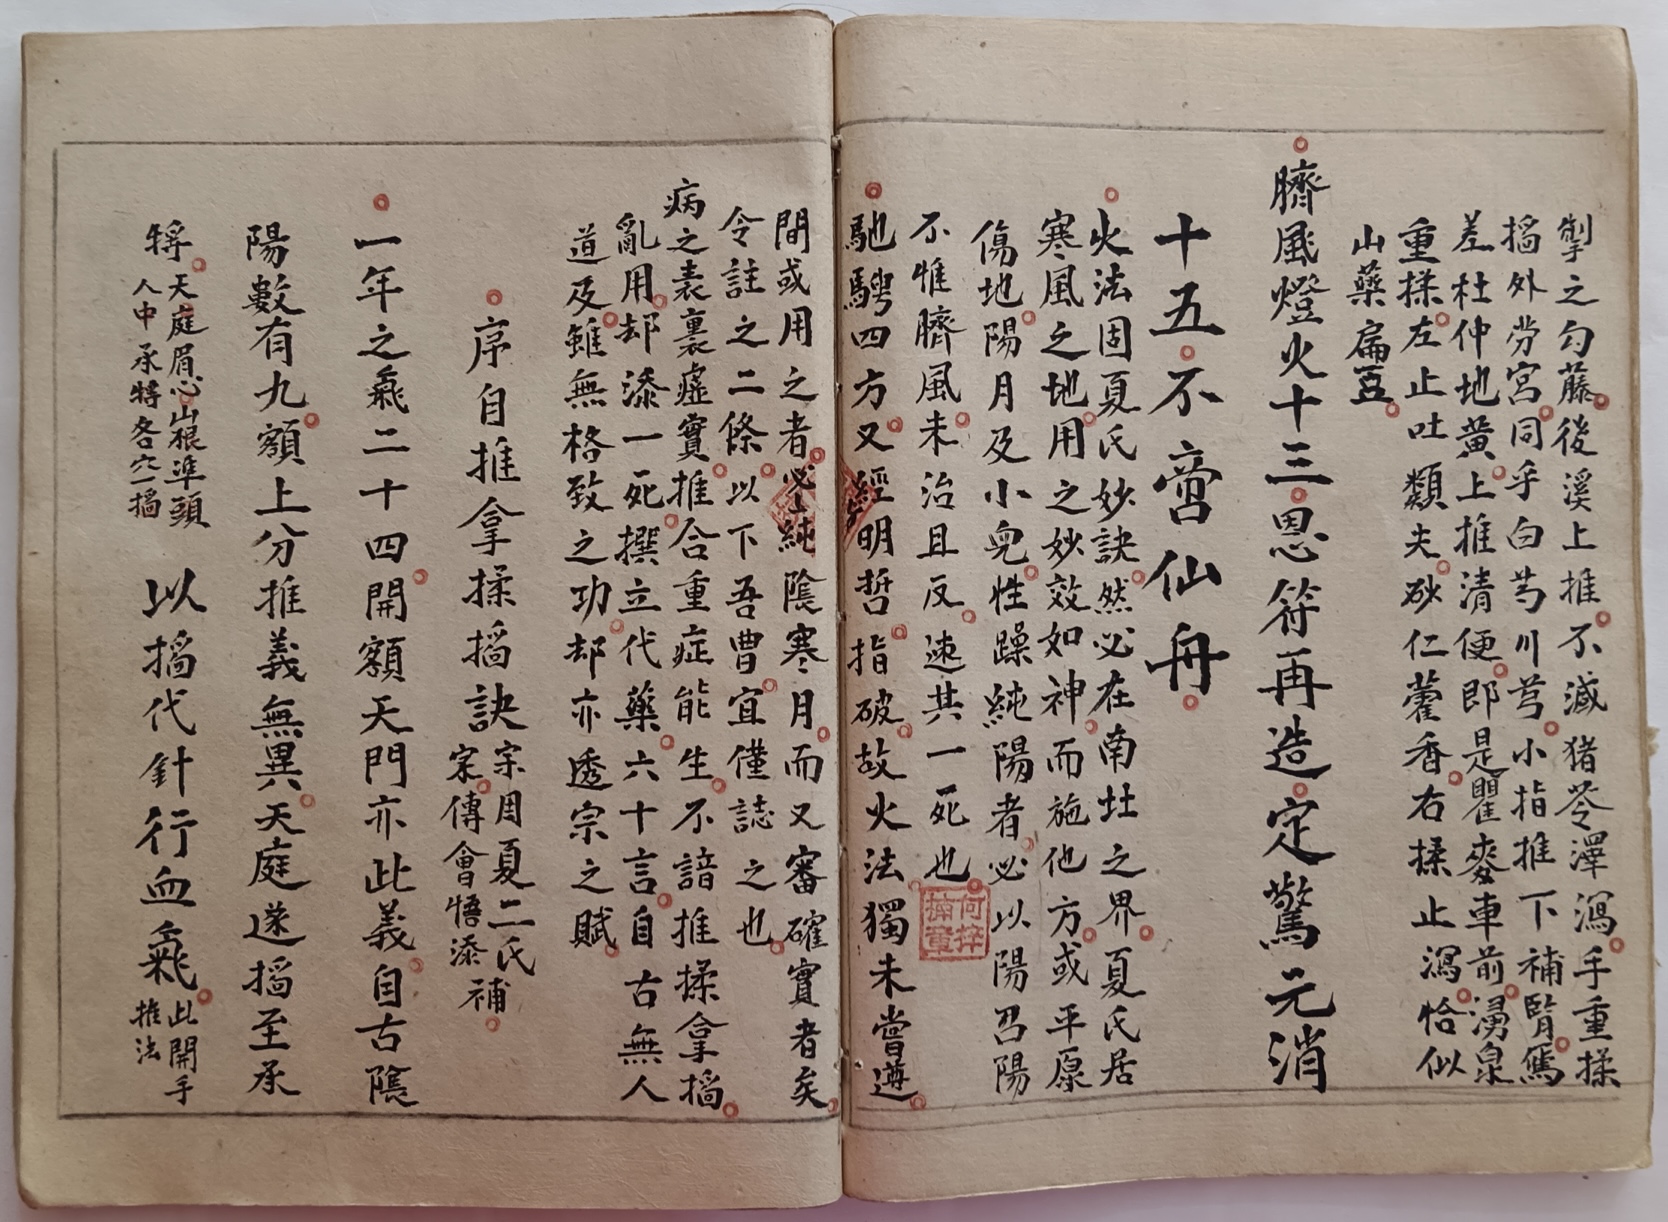 掣之勾藤後溪上推不減猪苓澤瀉手重揉
搯外劳宮同乎白芍川芎小指推下補腎馮
差杜仲地黄上推清便即是瞿麥車前湧泉
重揉左止吐類夫砂仁藿香右揉止瀉恰似
山藥扁豆
臍風燈火十三恩符再造定驚元消
十五不啻仙舟
火法固夏氏妙訣然必在南圵之界夏氏居
寒風之地用之妙效如神而施他方或平原
傷地陽月及小兒性躁純陽者必以陽召陽
不惟臍風未治且反速其一死也
何梓楠章
馳騁四方又經明哲指破故火法獨未嘗遵
間或用之者必上純陰寒月而又審確實者矣
令註之二條以下吾曹宜僅誌之也
病之表裏虛實推合重症能生不諳推揉拿搯
亂用却添一死撰立代藥六十言自古無人
道及雖無格致之功却亦透宗之賦
序自推拿揉搯訣
宗周夏二氏
宋傳會悟添補
一年之氣二十四開額天門亦此義自古陰
陽數有九額上分推義無異天庭遂搯至承
將
天庭眉心山根準頭
人中承將各穴一搯
以搯代針行血氣
此開手
推法